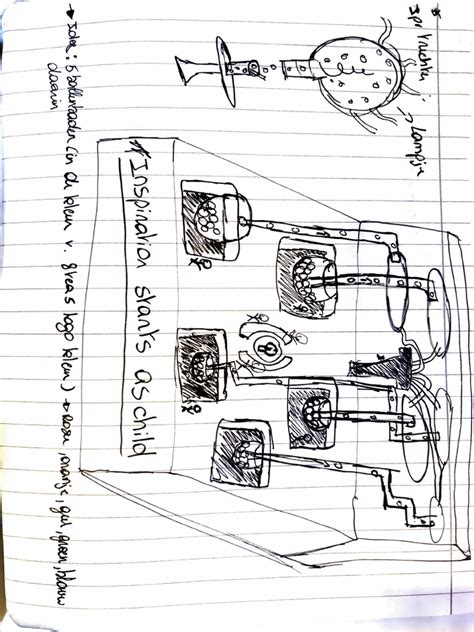 → Idee: 5 ballenbaden (in de kleur v. greas logo kleur) → rose, oranje, geel, groen, blauw
daarin
# Inspiration starts as child
→ Lampje